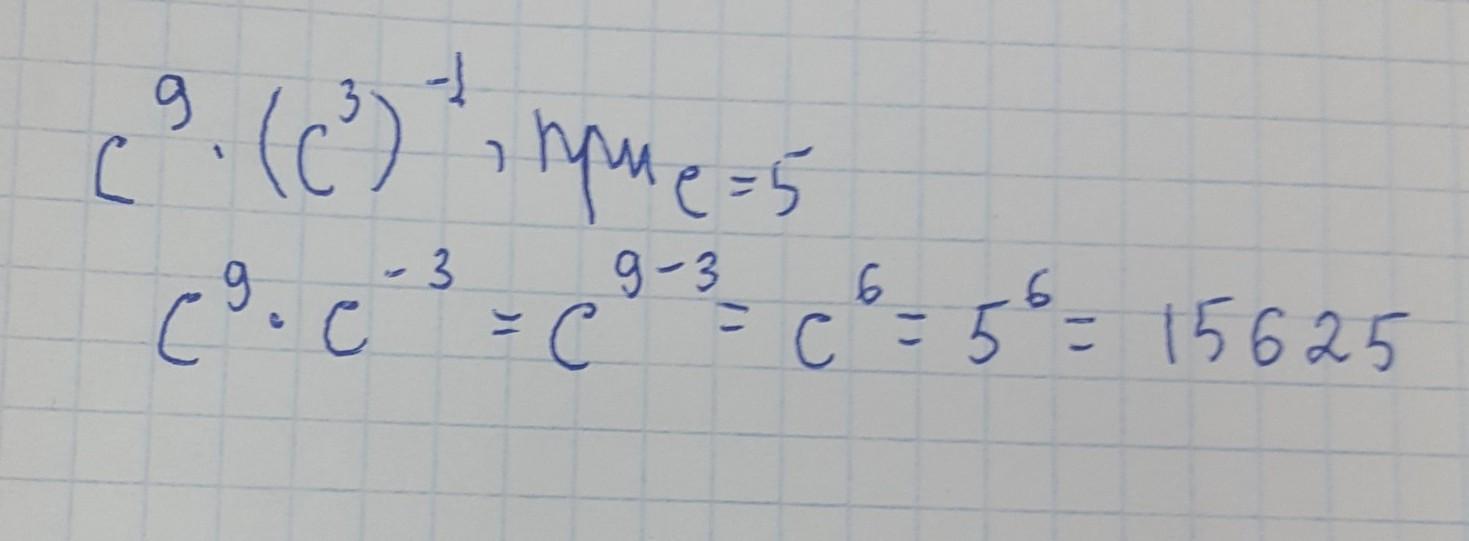 c⁹ · (c³)⁻¹, при c = 5
c⁹ · c⁻³ = c⁹⁻³ = c⁶ = 5⁶ = 15625